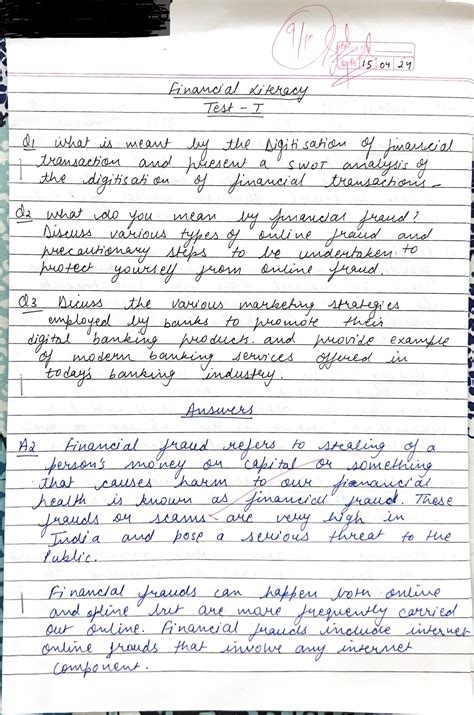 9/10
15 04 24
Financial Literacy
Test - I
Q1 What is meant by the Digitisation of financial
transaction and present a SWOT analysis of
the digitisation of financial transactions -
Q2 What do you mean by financial fraud?
Discuss various types of online fraud and
precautionary steps to be undertaken to
protect yourself from online fraud.
Q3 Dicuss the various marketing strategies
employed by banks to promote their
digital banking products. and provide example
of modern banking services offered in
today's banking industry.
Answers
A2 Financial fraud refers to stealing of a
person's money or capital or something
that causes harm to our financial
health is known as financial fraud. These
frauds or scams are very high in
India and pose a serious threat to the
Public.
Financial frauds can happen both online
and offline but are more frequently carried
out online. Financial frauds include internet
online frauds that involve any internet
component.